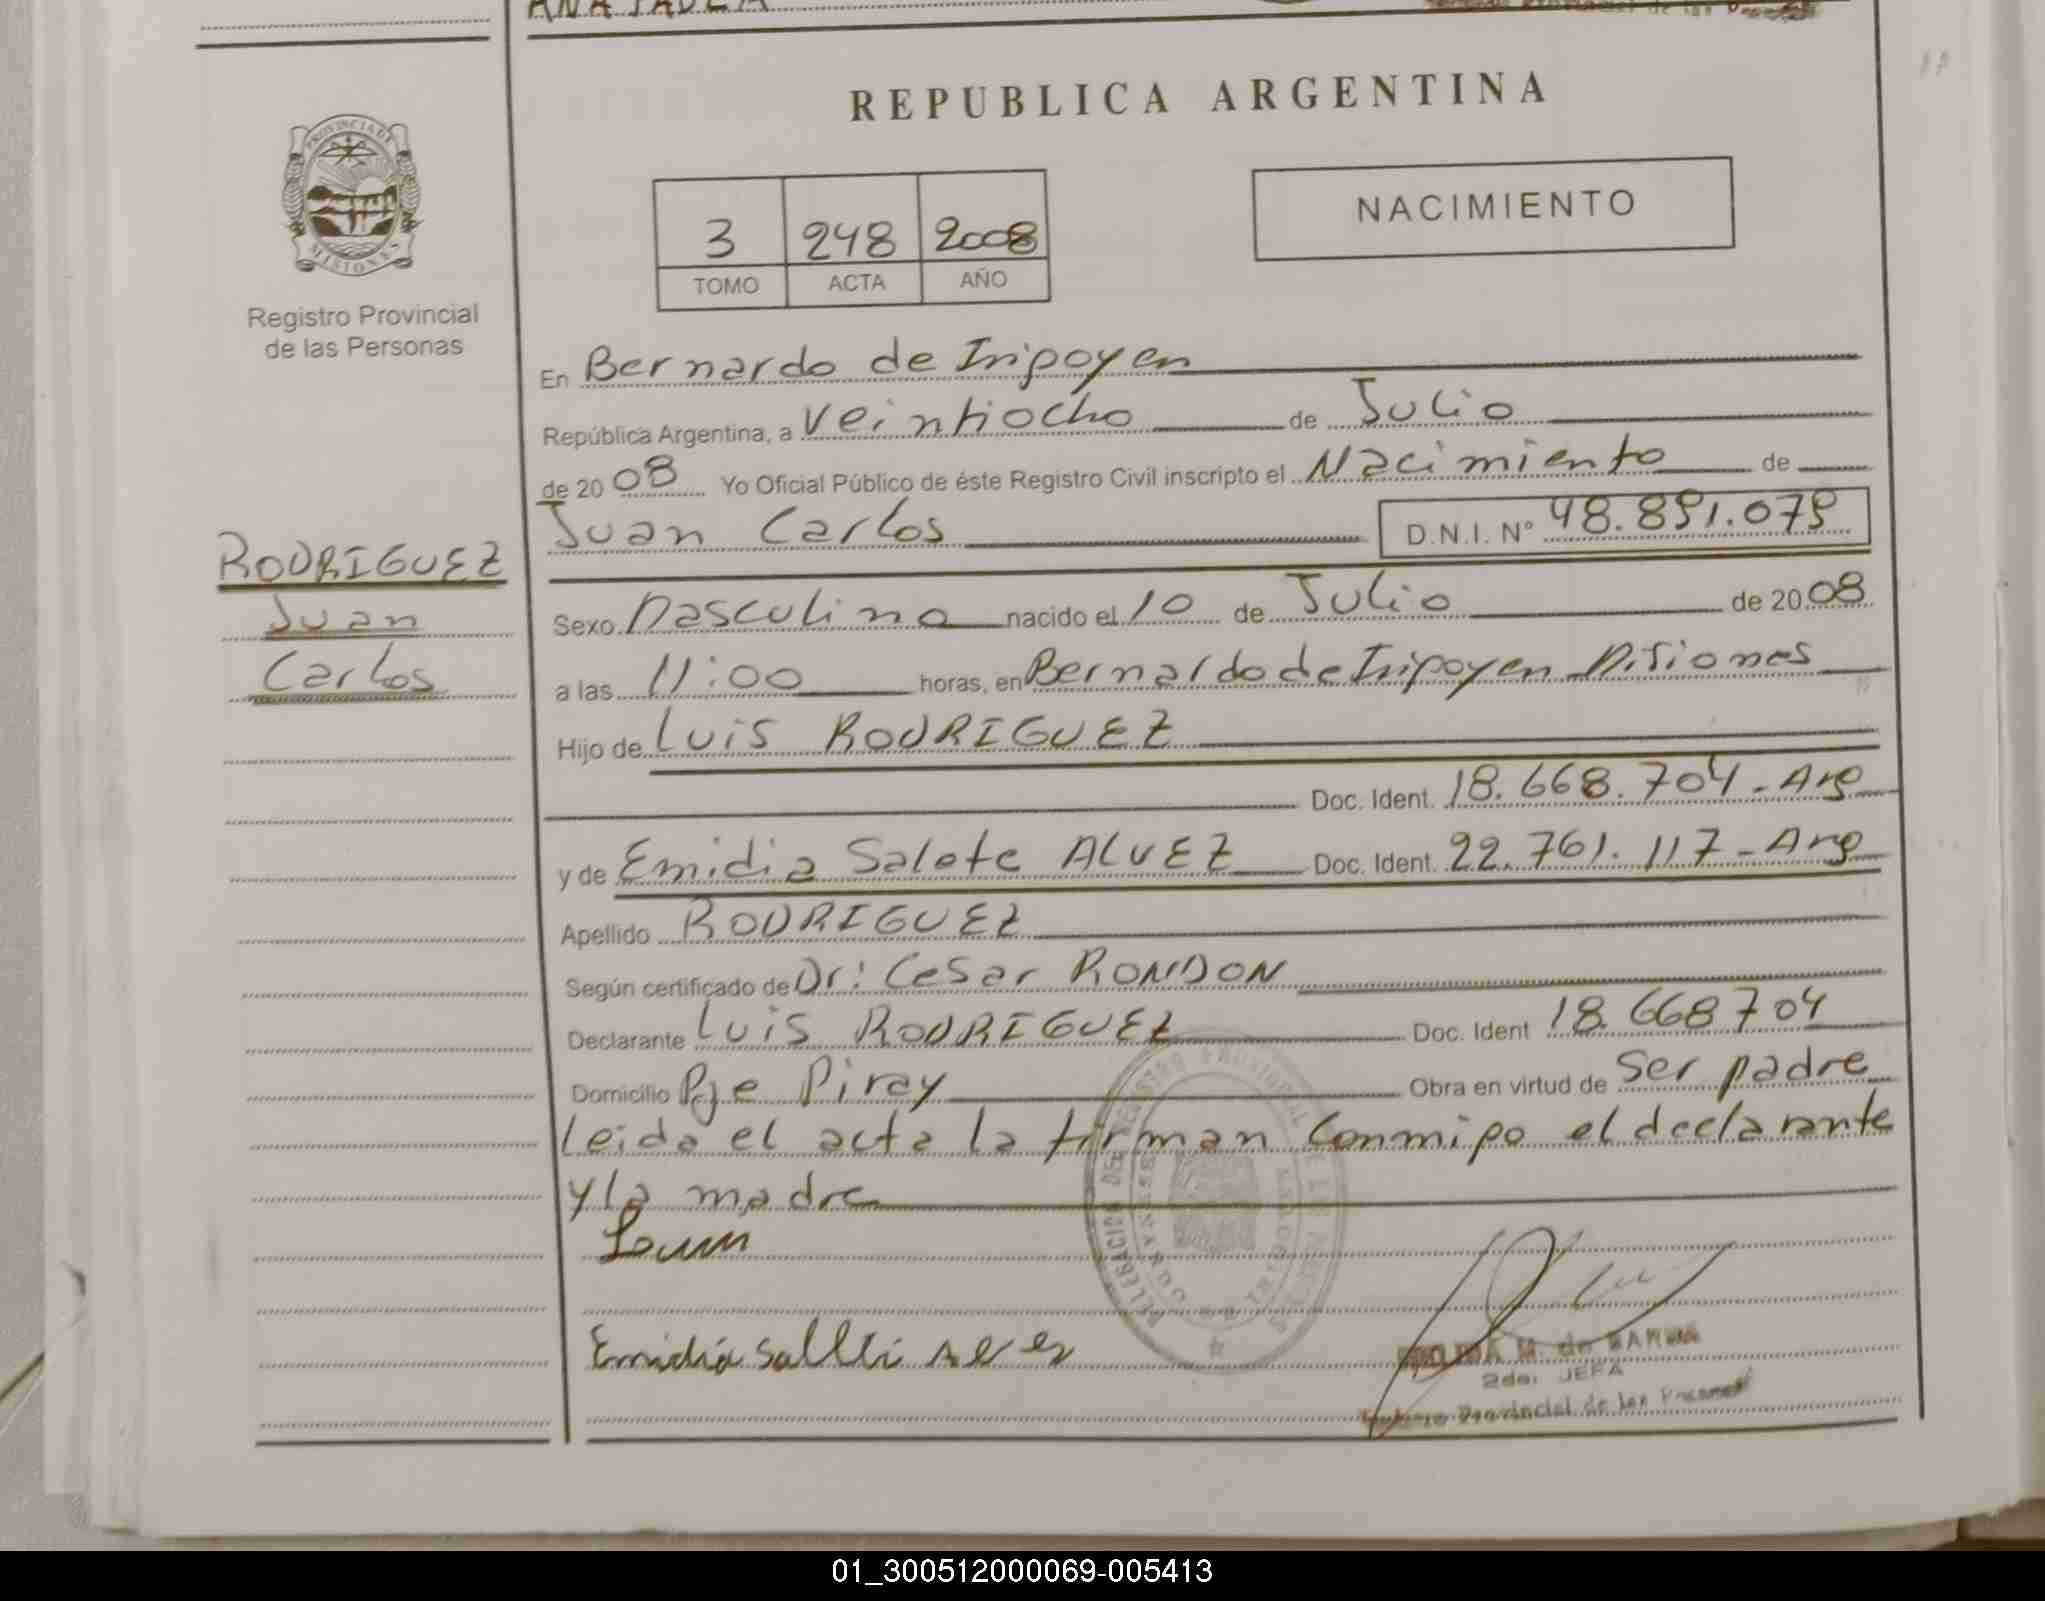 ANA PAULA
REPUBLICA ARGENTINA
PROVINCIA DE
MISIONES
Registro Provincial
de las Personas
3 248 2008
TOMO ACTA AÑO
NACIMIENTO
En Bernardo de Irigoyen
República Argentina, a Veintiocho de Julio
de 2008 Yo Oficial Público de éste Registro Civil inscripto el Nacimiento de
Juan Carlos D.N.I. Nº 48.891.079
RODRIGUEZ
Juan
Carlos
Sexo Masculino nacido el 10 de Julio de 2008
a las 11:00 horas, en Bernardo de Irigoyen Misiones
Hijo de Luis RODRIGUEZ
Doc. Ident. 18.668.704-Arg
y de Emidia Salete ALVEZ Doc. Ident. 22.761.117-Arg
Apellido RODRIGUEZ
Según certificado de Dr: Cesar RONDON
Declarante Luis RODRIGUEZ Doc. Ident 18.668704
Domicilio Pje Piray Obra en virtud de ser padre
leida el acta la firman conmigo el declarante
y la madre
Emidia
2da. JEFA
Provincial de las Personas
01_300512000069-005413